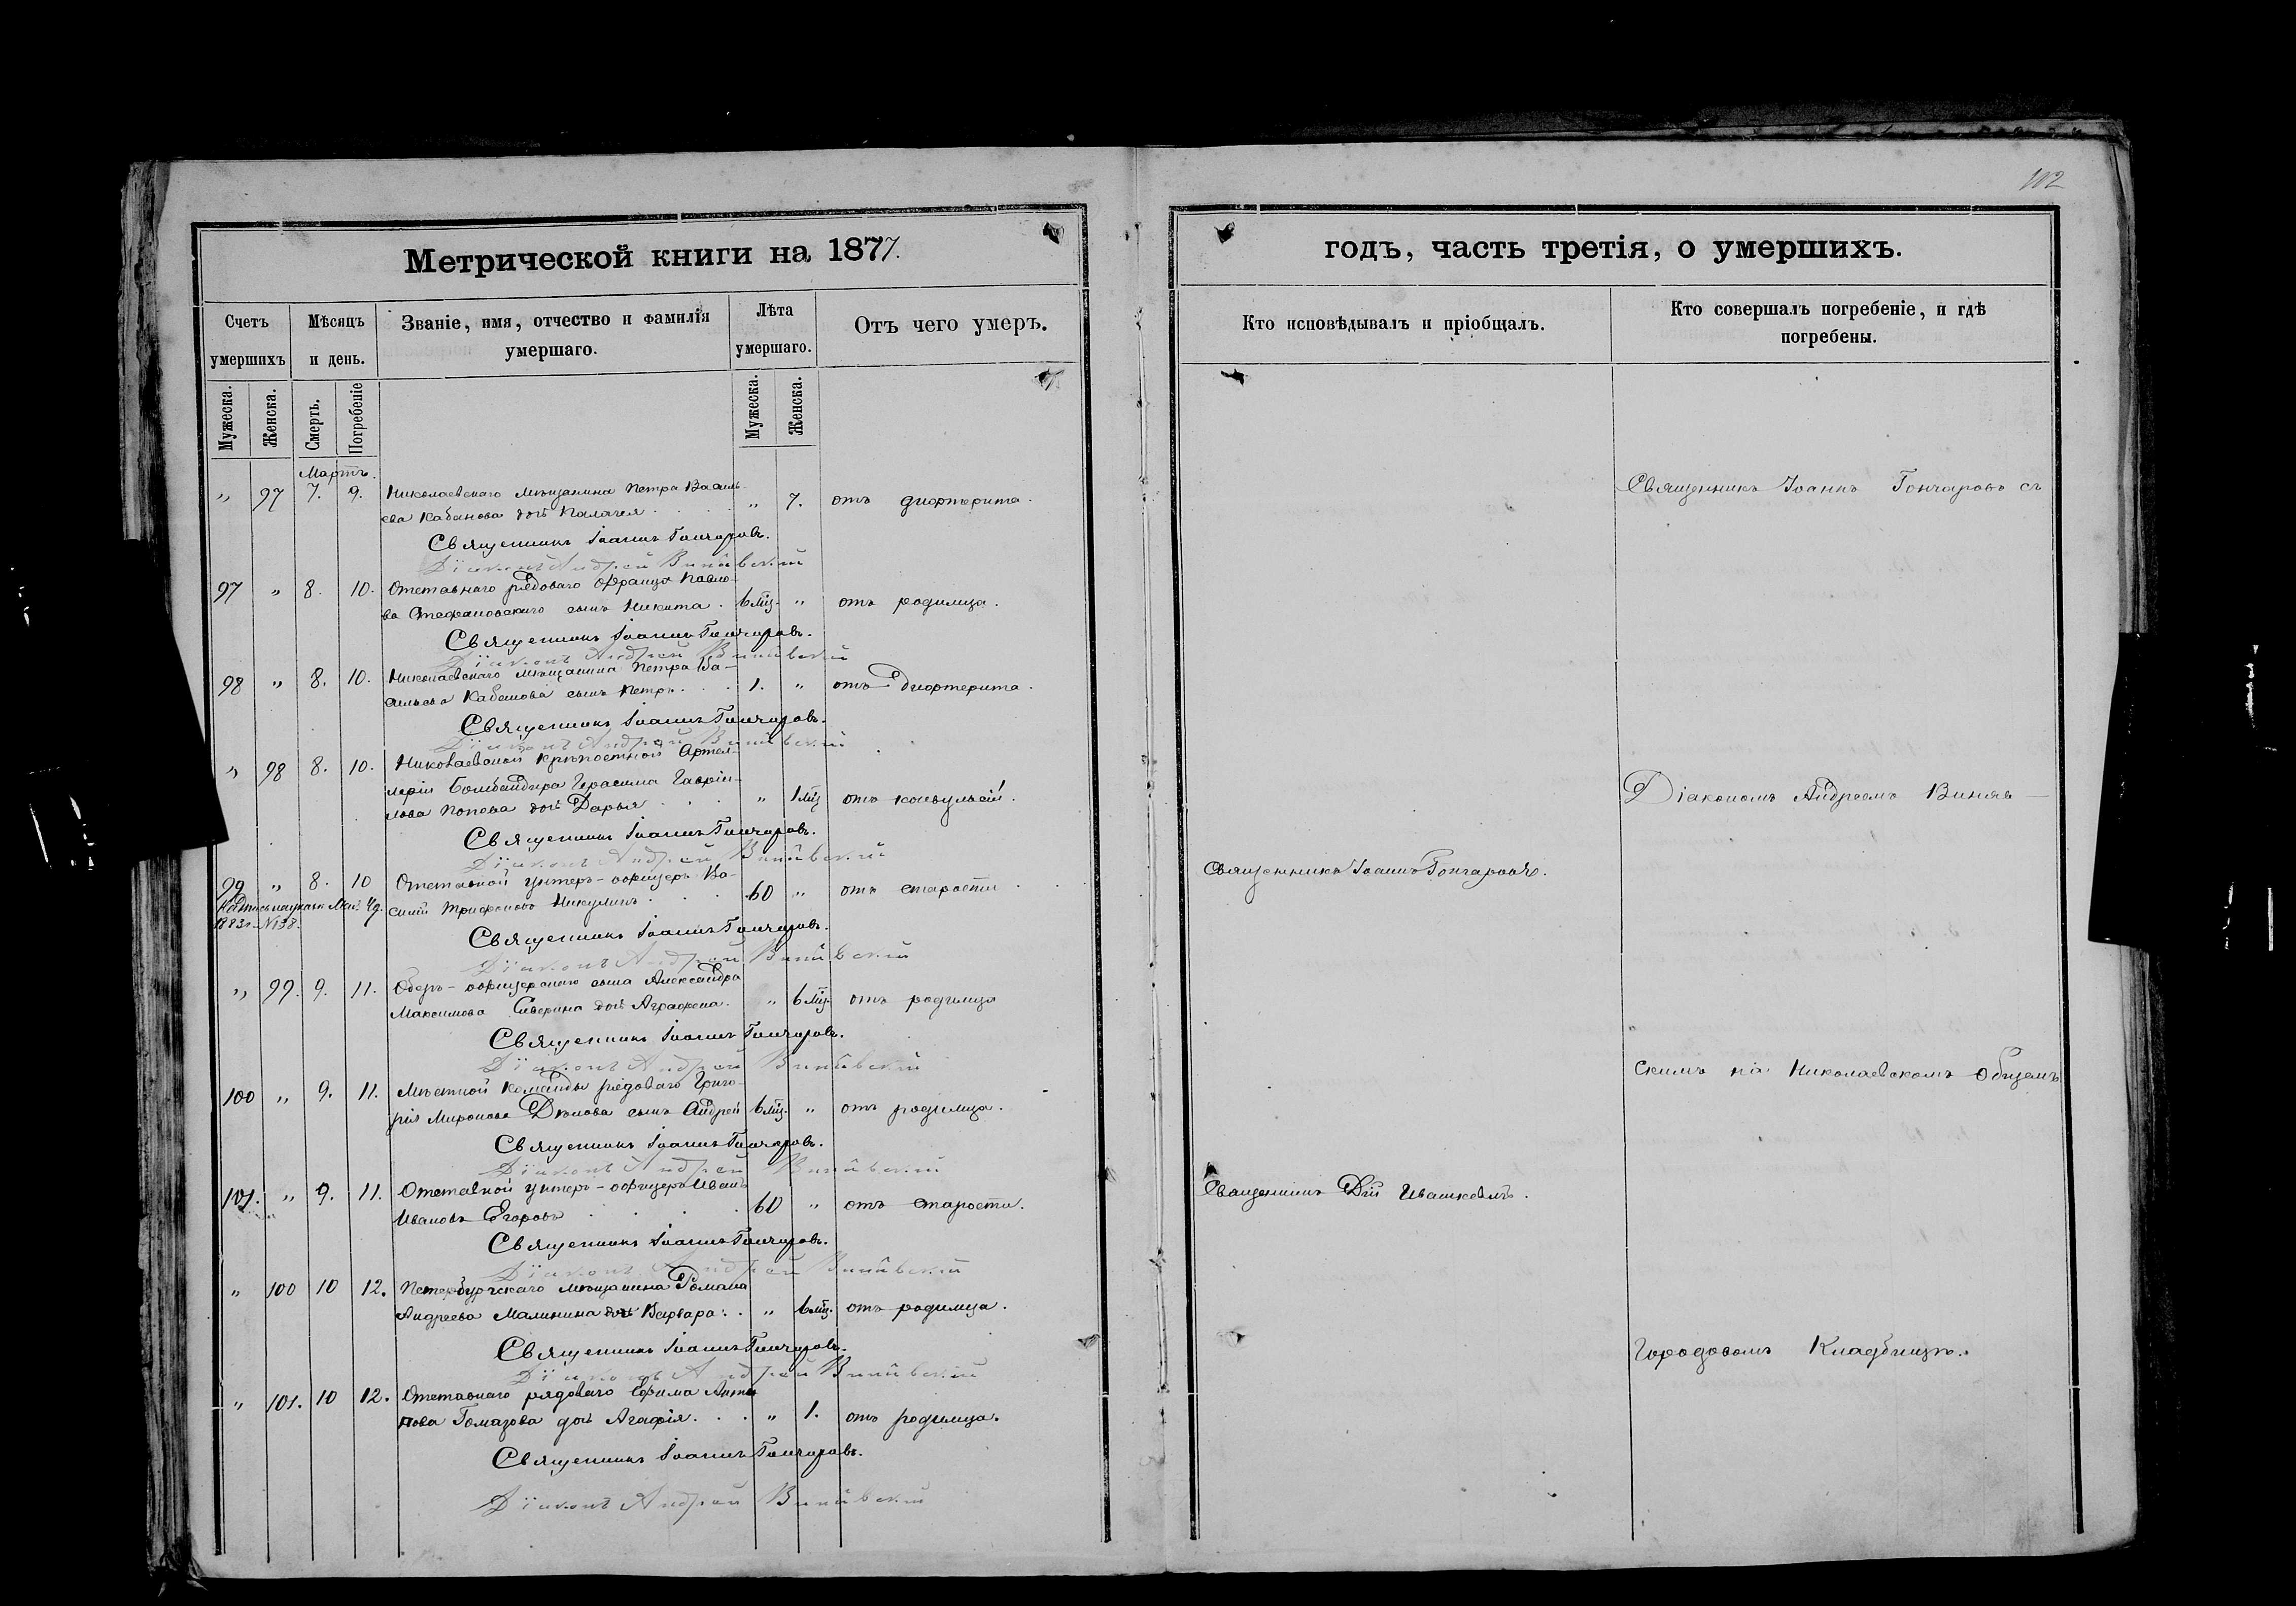 102
Метрической книги на 1877.
годъ, часть третія, о умершихъ.
Счетъ умершихъ
Мѣсяцъ и день.
Званіе, имя, отчество и фамилія умершаго.
Лѣта умершаго.
Отъ чего умеръ.
Кто исповѣдывалъ и пріобщалъ.
Кто совершалъ погребеніе, и гдѣ погребены.
Мужеска. Женска. Смерть. Погребеніе Мужеска. Женска.
Мартъ.
" 97 7. 9. Николаевскаго мѣщанина Петра Василь-
ева Кабанова дочь Палагея " 7. отъ дифтерита.
Священникъ Іоаннъ Гончаровъ съ
Священникъ Іоаннъ Гончаровъ.
Діаконъ Андрей Винявскій
97 " 8. 10. Отставнаго рядоваго Франца Павло-
ва Стефановскаго сынъ Никита. 6 мц. " отъ родимца.
Священникъ Іоаннъ Гончаровъ.
Діаконъ Андрей Винявскій
98 " 8. 10. Николаевскаго мѣщанина Петра Ва-
сильева Кабанова сынъ Петръ. 1. " отъ дифтерита.
Священникъ Іоаннъ Гончаровъ.
Діаконъ Андрей Винявскій
" 98 8. 10. Николаевской крѣпостной Артил-
леріи бомбандира Герасима Гаврі-
лова Попова дочь Дарья " 1 мц отъ конвульсій.
Діакономъ Андреемъ Виняв-
Священникъ Іоаннъ Гончаровъ.
Діаконъ Андрей Винявскій
99 " 8. 10 Отставной унтеръ-офицеръ Ва-
силій Трифоновъ Никулинъ 60 " отъ старости
Священникъ Іоаннъ Гончаровъ.
1883 г. №138.
Священникъ Іоаннъ Гончаровъ.
Діаконъ Андрей Винявскій
" 99. 9. 11. Оберъ-офицерскаго сына Александра
Максимова Сиверина дочь Аграфена. " 6 мц. отъ родимца
Священникъ Іоаннъ Гончаровъ.
Діаконъ Андрей Винявскій
скимъ на Николаевскомъ общемъ
100 " 9. 11. Мѣстной команды рядоваго Григо-
рія Миронова Дѣлова сынъ Андрей 6 мц. " отъ родимца.
Священникъ Іоаннъ Гончаровъ.
Діаконъ Андрей Винявскій
101. " 9. 11. Отставной унтеръ-офицеръ Иванъ
Ивановъ Егоровъ 60 " отъ старости.
Священникъ Дій Ивашкевичъ.
Священникъ Іоаннъ Гончаровъ.
Діаконъ Андрей Винявскій
" 100 10 12. Петербургскаго мѣщанина Романа
Андреева Малинина дочь Варвара. " 6 мц. отъ родимца.
Священникъ Іоаннъ Гончаровъ.
Діаконъ Андрей Винявскій
Городовомъ Кладбищѣ.
" 101. 10 12. Отставнаго рядоваго Ефима Анти-
пова Томазова дочь Агафія. " 1. отъ родимца.
Священникъ Іоаннъ Гончаровъ.
Діаконъ Андрей Винявскій